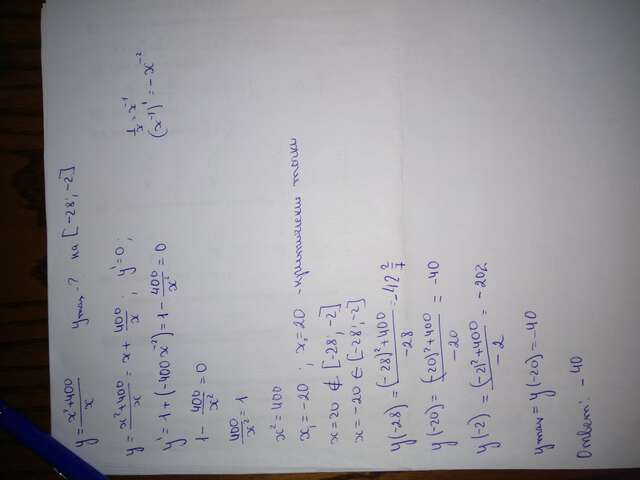 y = (x²+400)/x    y max - ?    на [-28; -2]
y = (x²+400)/x = x + 400/x ; y' = 0 ;
1/x = x⁻¹
(x⁻¹)' = -x⁻²
y' = 1 + (-400x⁻²) = 1 - 400/x² = 0
1 - 400/x² = 0
400/x² = 1
x² = 400
x₁ = -20 ; x₂ = 20 - критически точки
x = 20 ∉ [-28; -2]
x = -20 ∈ [-28; -2]
y(-28) = ((-28)²+400)/-28 = -42 2/7
y(-20) = ((-20)²+400)/-20 = -40
y(-2) = ((-2)²+400)/-2 = -202
y max = y(-20) = -40
Ответ: -40